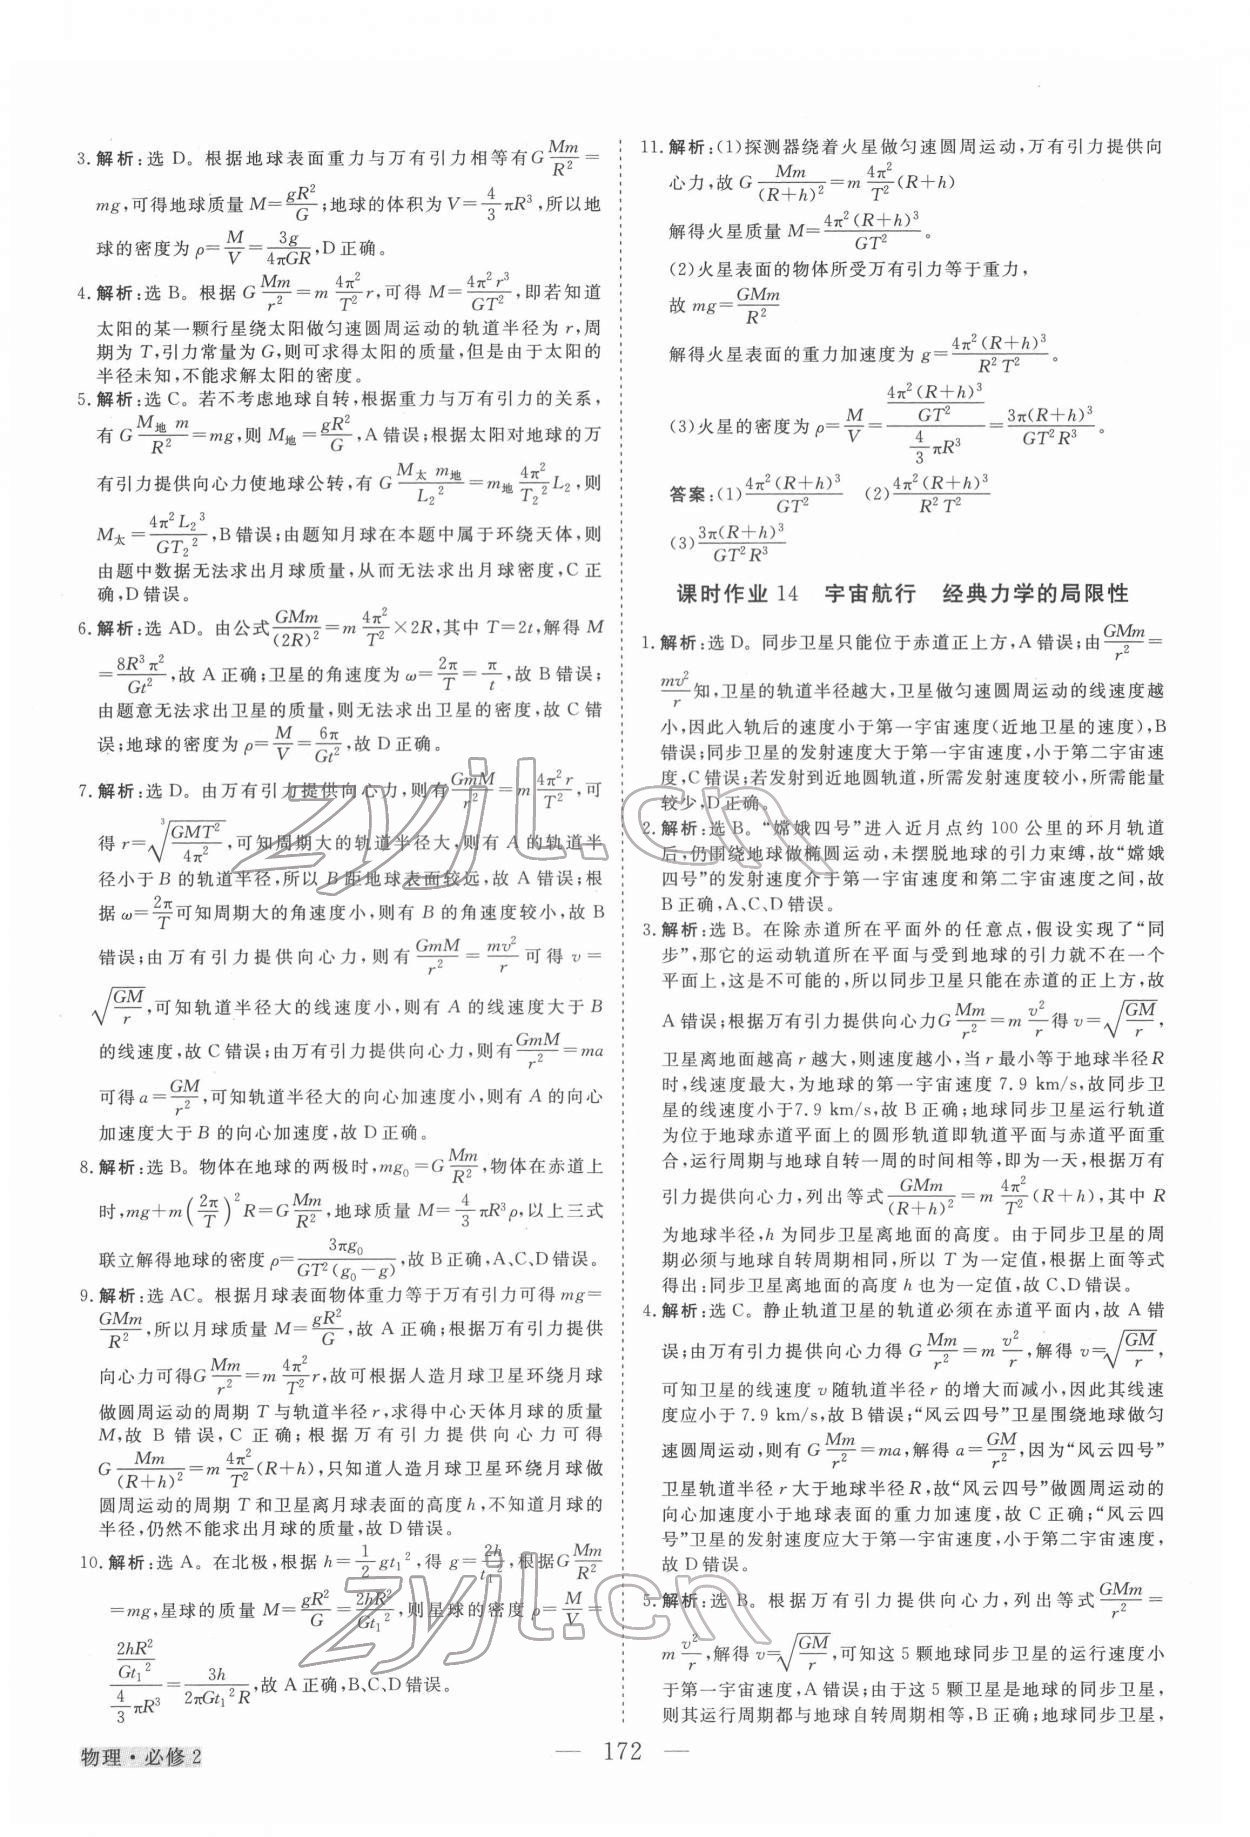 3. 解析:选 D。根据地球表面重力与万有引力相等有 G\frac{Mm}{R^2}=
mg,可得地球质量 M=\frac{gR^2}{G};地球的体积为 V=\frac{4}{3}πR^3,所以地
球的密度为 ρ=\frac{M}{V}=\frac{3g}{4πGR},D 正确。
4. 解析:选 B。根据 G\frac{Mm}{r^2}=m\frac{4π^2}{T^2}r,可得 M=\frac{4π^2r^3}{GT^2},即若知道
太阳的某一颗行星绕太阳做匀速圆周运动的轨道半径为 r,周
期为 T,引力常量为 G,则可求得太阳的质量,但是由于太阳的
半径未知,不能求解太阳的密度。
5. 解析:选 C。若不考虑地球自转,根据重力与万有引力的关系,
有 G\frac{M_地 m}{R^2}=mg,则 M_地=\frac{gR^2}{G},A 错误;根据太阳对地球的万
有引力提供向心力使地球公转,有 G\frac{M_太 m_地}{L_2^2}=m_地\frac{4π^2}{T_2^2}L_2,则
M_太=\frac{4π^2L_2^3}{GT_2^2},B 错误;由题知月球在本题中属于环绕天体,则
由题中数据无法求出月球质量,从而无法求出月球密度,C 正
确,D 错误。
6. 解析:选 AD。由公式\frac{GMm}{(2R)^2}=m\frac{4π^2}{T^2}×2R,其中 T=2t,解得 M
=\frac{8R^3π^2}{Gt^2},故 A 正确;卫星的角速度为 ω=\frac{2π}{T}=\frac{π}{t},故 B 错误;
由题意无法求出卫星的质量,则无法求出卫星的密度,故 C 错
误;地球的密度为 ρ=\frac{M}{V}=\frac{6π}{Gt^2},故 D 正确。
7. 解析:选 D。由万有引力提供向心力,则有\frac{GmM}{r^2}=m\frac{4π^2r}{T^2},可
得 r=\sqrt[3]{\frac{GMT^2}{4π^2}},可知周期大的轨道半径大,则有 A 的轨道半
径小于 B 的轨道半径,所以 B 距地球表面较远,故 A 错误;根
据 ω=\frac{2π}{T}可知周期大的角速度小,则有 B 的角速度较小,故 B
错误;由万有引力提供向心力,则有\frac{GmM}{r^2}=\frac{mv^2}{r}可得 v=
\sqrt{\frac{GM}{r}},可知轨道半径大的线速度小,则有 A 的线速度大于 B
的线速度,故 C 错误;由万有引力提供向心力,则有\frac{GmM}{r^2}=ma
可得 a=\frac{GM}{r^2},可知轨道半径大的向心加速度小,则有 A 的向心
加速度大于 B 的向心加速度,故 D 正确。
8. 解析:选 B。物体在地球的两极时,mg_0=G\frac{Mm}{R^2},物体在赤道上
时,mg+m(\frac{2π}{T})^2R=G\frac{Mm}{R^2},地球质量 M=\frac{4}{3}πR^3ρ,以上三式
联立解得地球的密度 ρ=\frac{3πg_0}{GT^2(g_0-g)},故 B 正确,A、C、D 错误。
9. 解析:选 AC。根据月球表面物体重力等于万有引力可得 mg=
\frac{GMm}{R^2},所以月球质量 M=\frac{gR^2}{G},故 A 正确;根据万有引力提供
向心力可得 G\frac{Mm}{r^2}=m\frac{4π^2}{T^2}r,故可根据人造月球卫星环绕月球
做圆周运动的周期 T 与轨道半径 r,求得中心天体月球的质量
M,故 B 错误,C 正确;根据万有引力提供向心力可得
G\frac{Mm}{(R+h)^2}=m\frac{4π^2}{T^2}(R+h),只知道人造月球卫星环绕月球做
圆周运动的周期 T 和卫星离月球表面的高度 h,不知道月球的
半径,仍然不能求出月球的质量,故 D 错误。
10. 解析:选 A。在北极,根据 h=\frac{1}{2}gt_1^2,得 g=\frac{2h}{t_1^2},根据G\frac{Mm}{R^2}
=mg,星球的质量 M=\frac{gR^2}{G}=\frac{2hR^2}{Gt_1^2},则星球的密度 ρ=\frac{M}{V}=
\frac{\frac{2hR^2}{Gt_1^2}}{\frac{4}{3}πR^3}=\frac{3h}{2πGt_1^2R},故 A 正确,B、C、D 错误。
11. 解析:(1)探测器绕着火星做匀速圆周运动,万有引力提供向
心力,故 G\frac{Mm}{(R+h)^2}=m\frac{4π^2}{T^2}(R+h)
解得火星质量 M=\frac{4π^2(R+h)^3}{GT^2}。
(2)火星表面的物体所受万有引力等于重力,
故 mg=\frac{GMm}{R^2}
解得火星表面的重力加速度为 g=\frac{4π^2(R+h)^3}{R^2T^2}。
(3)火星的密度为 ρ=\frac{M}{V}=\frac{\frac{4π^2(R+h)^3}{GT^2}}{\frac{4}{3}πR^3}=\frac{3π(R+h)^3}{GT^2R^3}。
答案:(1)\frac{4π^2(R+h)^3}{GT^2} (2)\frac{4π^2(R+h)^3}{R^2T^2}
(3)\frac{3π(R+h)^3}{GT^2R^3}
课时作业 14 宇宙航行 经典力学的局限性
1. 解析:选 D。同步卫星只能位于赤道正上方,A 错误;由\frac{GMm}{r^2}=
\frac{mv^2}{r}知,卫星的轨道半径越大,卫星做匀速圆周运动的线速度越
小,因此入轨后的速度小于第一宇宙速度(近地卫星的速度),B
错误;同步卫星的发射速度大于第一宇宙速度,小于第二宇宙速
度,C 错误;若发射到近地圆轨道,所需发射速度较小,所需能量
较少,D 正确。
2. 解析:选 B。“嫦娥四号”进入近月点约 100 公里的环月轨道
后,仍围绕地球做椭圆运动,未摆脱地球的引力束缚,故“嫦娥
四号”的发射速度介于第一宇宙速度和第二宇宙速度之间,故
B 正确,A、C、D 错误。
3. 解析:选 B。在除赤道所在平面外的任意点,假设实现了“同
步”,那它的运动轨道所在平面与受到地球的引力就不在一个
平面上,这是不可能的,所以同步卫星只能在赤道的正上方,故
A 错误;根据万有引力提供向心力G\frac{Mm}{r^2}=m\frac{v^2}{r}得 v=\sqrt{\frac{GM}{r}},
卫星离地面越高 r 越大,则速度越小,当 r 最小等于地球半径 R
时,线速度最大,为地球的第一宇宙速度 7.9 km/s,故同步卫
星的线速度小于7.9 km/s,故 B 正确;地球同步卫星运行轨道
为位于地球赤道平面上的圆形轨道即轨道平面与赤道平面重
合,运行周期与地球自转一周的时间相等,即为一天,根据万有
引力提供向心力,列出等式\frac{GMm}{(R+h)^2}=m\frac{4π^2}{T^2}(R+h),其中 R
为地球半径,h 为同步卫星离地面的高度。由于同步卫星的周
期必须与地球自转周期相同,所以 T 为一定值,根据上面等式
得出:同步卫星离地面的高度 h 也为一定值,故 C、D 错误。
4. 解析:选 C。静止轨道卫星的轨道必须在赤道平面内,故 A 错
误;由万有引力提供向心力得 G\frac{Mm}{r^2}=m\frac{v^2}{r},解得 v=\sqrt{\frac{GM}{r}},
可知卫星的线速度 v 随轨道半径 r 的增大而减小,因此其线速
度应小于 7.9 km/s,故 B 错误;“风云四号”卫星围绕地球做匀
速圆周运动,则有 G\frac{Mm}{r^2}=ma,解得 a=\frac{GM}{r^2},因为“风云四号”
卫星轨道半径 r 大于地球半径 R,故“风云四号”做圆周运动的
向心加速度小于地球表面的重力加速度,故 C 正确;“风云四
号”卫星的发射速度应大于第一宇宙速度,小于第二宇宙速度,
故 D 错误。
5. 解析:选 B。根据万有引力提供向心力,列出等式\frac{GMm}{r^2}=
m\frac{v^2}{r},解得 v=\sqrt{\frac{GM}{r}},可知这 5 颗地球同步卫星的运行速度小
于第一宇宙速度,A 错误;由于这 5 颗卫星是地球的同步卫星,
则其运行周期都与地球自转周期相等,B 正确;地球同步卫星,
物理·必修 2
— 172 —
zyjl.cn
zyjl.cn